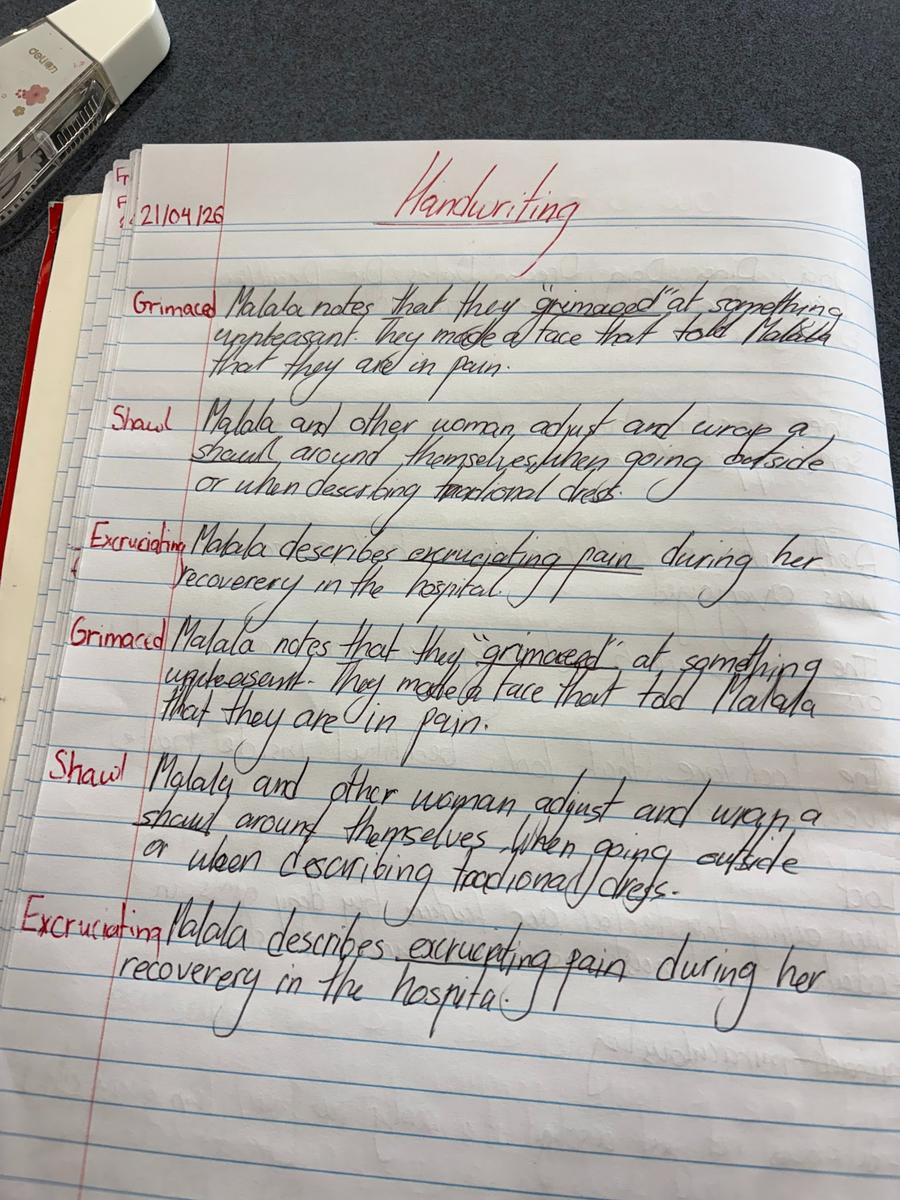 deli
21/04/26
Handwriting
Grimaced Malala notes that they "grimaced" at something
unpleasant. They made a face that told Malala
that they are in pain.
Shawl Malala and other woman adjust and wrap a
shawl around themselves, when going outside
or when describing tradional dress.
Excruciating Malala describes excruciating pain during her
recoverery in the hospital.
Grimaced Malala notes that they "grimaced" at something
unpleasant. They made a face that told Malala
that they are in pain.
Shawl Malala and other woman adjust and wrap a
shawl around themselves, when going outside
or when describing tradional dress.
Excruciating Malala describes excruciating pain during her
recoverery in the hospital.